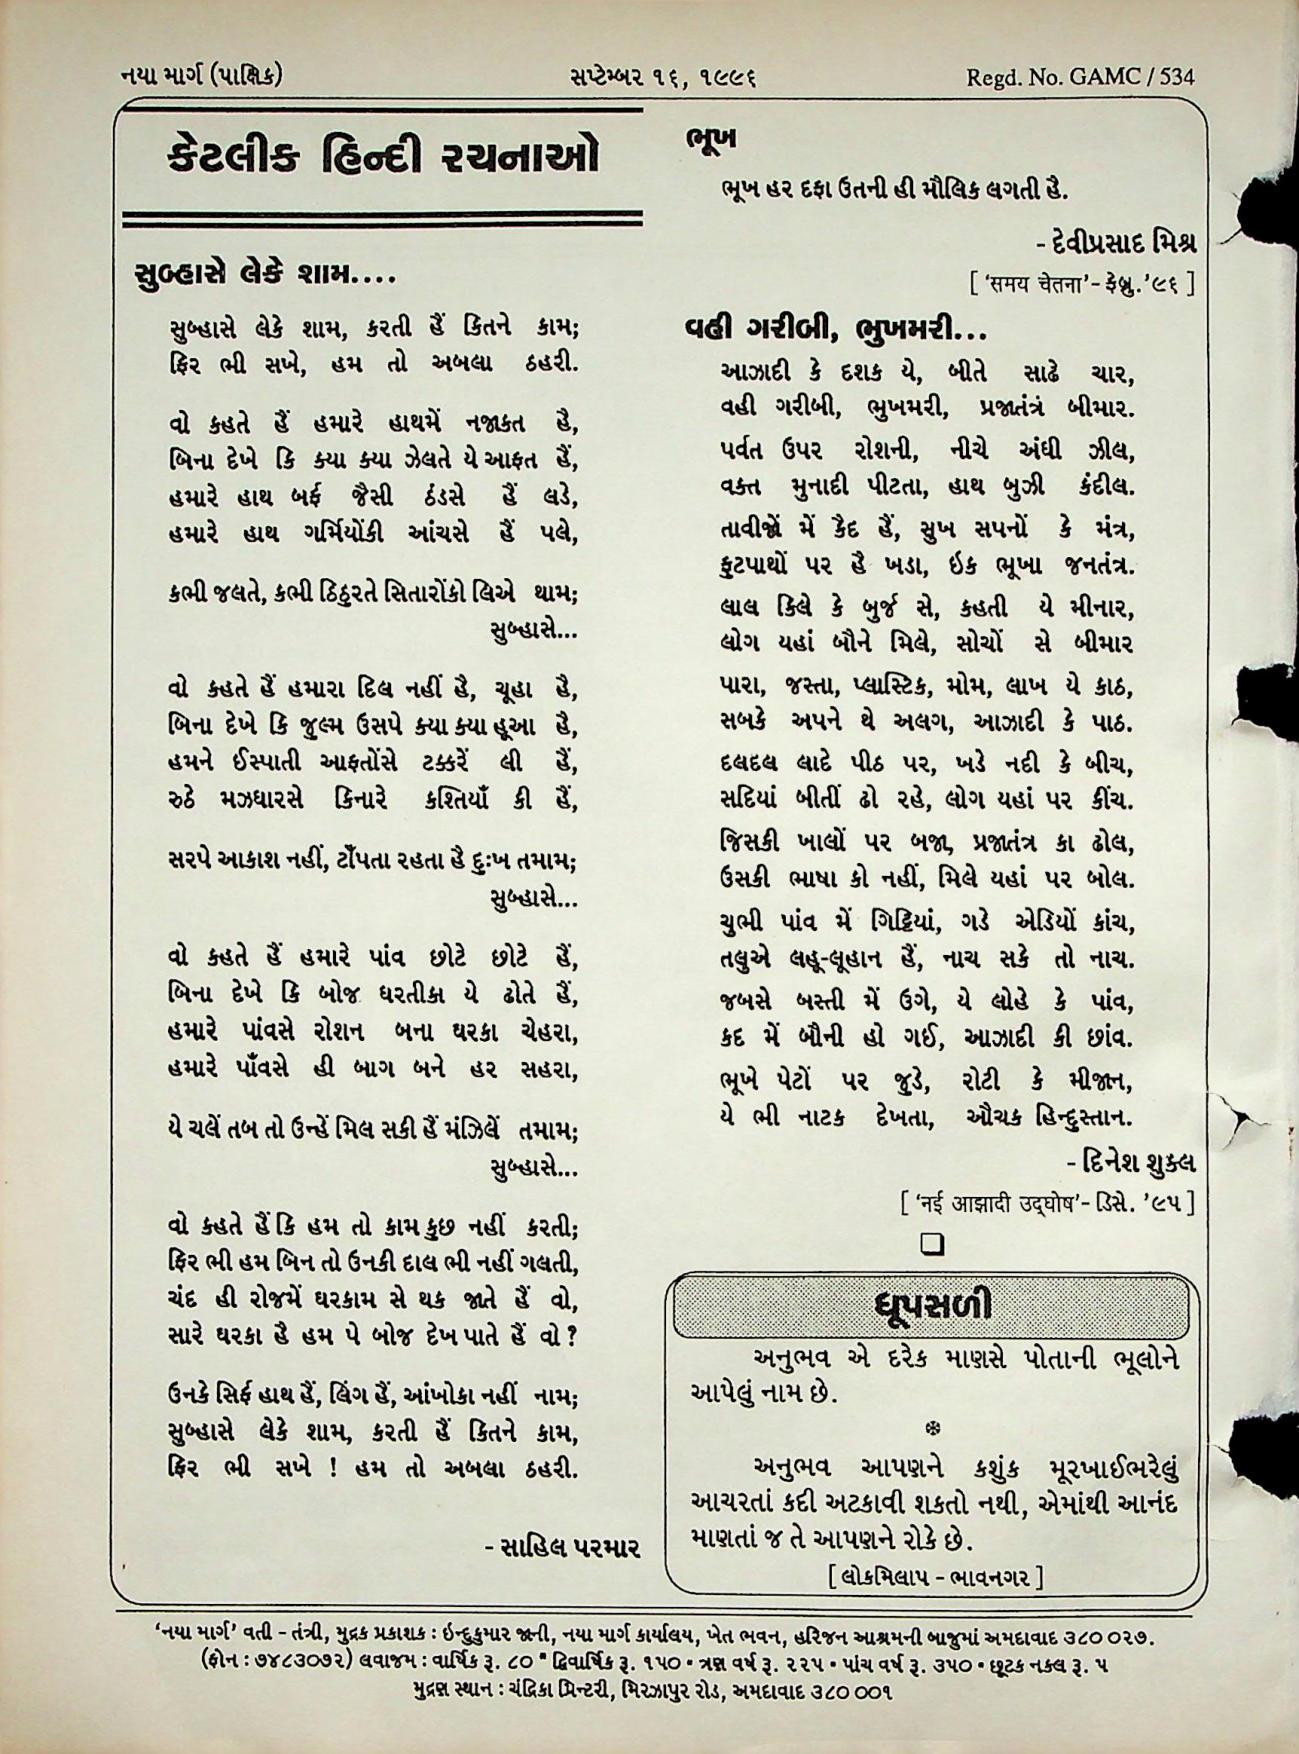 નયા માર્ગ (પાક્ષિક)
સપ્ટેમ્બર ૧૬, ૧૯૯૬
Regd. No. GAMC / 534
કેટલીક હિન્દી રચનાઓ
સુબ્હાસે લેકે શામ....
સુબ્હાસે લેકે શામ, કરતી હૈં કિતને કામ;
ફિર ભી સખે, હમ તો અબલા ઠહરી.
વો કહતે હૈં હમારે હાથમેં નજાકત હૈ,
બિના દેખે કિ ક્યા ક્યા ઝેલતે યે આફત હૈં,
હમારે હાથ બર્ફ જૈસી ઠંડસે હૈં લડે,
હમારે હાથ ગર્મિયોંકી આંચસે હૈં પલે,
કભી જલતે, કભી ઠિઠુરતે સિતારોંકો લિએ થામ;
સુબ્હાસે...
વો કહતે હૈં હમારા દિલ નહીં હૈ, ચૂહા હૈ,
બિના દેખે કિ જુલ્મ ઉસપે ક્યા ક્યા હૂઆ હૈ,
હમને ઈસ્પાતી આફતોંસે ટક્કરેં લી હૈં,
રુઠે મઝધારસે કિનારે કશ્તિયાઁ કી હૈં,
સરપે આકાશ નહીં, ટાઁપતા રહતા હૈ દુઃખ તમામ;
સુબ્હાસે...
વો કહતે હૈં હમારે પાંવ છોટે છોટે હૈં,
બિના દેખે કિ બોજ ધરતીકા યે ઢોતે હૈં,
હમારે પાંવસે રોશન બના ઘરકા ચેહરા,
હમારે પાઁવસે હી બાગ બને હર સહરા,
યે ચલેં તબ તો ઉન્હેં મિલ સકી હૈં મંઝિલેં તમામ;
સુબ્હાસે...
વો કહતે હૈં કિ હમ તો કામ કુછ નહીં કરતી;
ફિર ભી હમ બિન તો ઉનકી દાલ ભી નહીં ગલતી,
ચંદ હી રોજમેં ઘરકામ સે થક જાતે હૈં વો,
સારે ઘરકા હૈ હમ પે બોજ દેખ પાતે હૈં વો ?
ઉનકે સિર્ફ હાથ હૈં, લિંગ હૈં, આંખોકા નહીં નામ;
સુબ્હાસે લેકે શામ, કરતી હૈં કિતને કામ,
ફિર ભી સખે ! હમ તો અબલા ઠહરી.
- સાહિલ પરમાર
ભૂખ
ભૂખ હર દફા ઉતની હી મૌલિક લગતી હૈ.
- દેવીપ્રસાદ મિશ્ર
[ 'समय चेतना'- ફેબ્રુ.'૯૬ ]
વહી ગરીબી, ભુખમરી...
આઝાદી કે દશક યે, બીતે સાઢે ચાર,
વહી ગરીબી, ભુખમરી, પ્રજાતંત્રં બીમાર.
પર્વત ઉપર રોશની, નીચે અંધી ઝીલ,
વક્ત મુનાદી પીટતા, હાથ બુઝી કંદીલ.
તાવીજોં મેં કૈદ હૈં, સુખ સપનોં કે મંત્ર,
ફુટપાથોં પર હૈ ખડા, ઇક ભૂખા જનતંત્ર.
લાલ કિલે કે બુર્જ સે, કહતી યે મીનાર,
લોગ યહાં બૌને મિલે, સોચોં સે બીમાર
પારા, જસ્તા, પ્લાસ્ટિક, મોમ, લાખ યે કાઠ,
સબકે અપને થે અલગ, આઝાદી કે પાઠ.
દલદલ લાદે પીઠ પર, ખડે નદી કે બીચ,
સદિયાં બીતીં ઢો રહે, લોગ યહાં પર કીંચ.
જિસકી ખાલોં પર બજા, પ્રજાતંત્ર કા ઢોલ,
ઉસકી ભાષા કો નહીં, મિલે યહાં પર બોલ.
ચુભી પાંવ મેં ગિટ્ટિયાં, ગડે એડિયોં કાંચ,
તલુએ લહૂ-લૂહાન હૈં, નાચ સકે તો નાચ.
જબસે બસ્તી મેં ઉગે, યે લોહે કે પાંવ,
કદ મેં બૌની હો ગઈ, આઝાદી કી છાંવ.
ભૂખે પેટોં પર જુડે, રોટી કે મીજાન,
યે ભી નાટક દેખતા, ઔચક હિન્દુસ્તાન.
- દિનેશ શુક્લ
[ 'नई आझादी उद्घोष'- ડિસે. '૯૫ ]
ધૂપસળી
અનુભવ એ દરેક માણસે પોતાની ભૂલોને
આપેલું નામ છે.
અનુભવ આપણને કશુંક મૂરખાઈભરેલું
આચરતાં કદી અટકાવી શકતો નથી, એમાંથી આનંદ
માણતાં જ તે આપણને રોકે છે.
[ લોકમિલાપ - ભાવનગર ]
'નયા માર્ગ' વતી - તંત્રી, મુદ્રક પ્રકાશક : ઇન્દુકુમાર જાની, નયા માર્ગ કાર્યાલય, ખેત ભવન, હરિજન આશ્રમની બાજુમાં અમદાવાદ ૩૮૦ ૦૨૭.
(ફોન : ૭૪૮૩૦૭૨) લવાજમ : વાર્ષિક રૂ. ૮૦ • દ્વિવાર્ષિક રૂ. ૧૫૦ • ત્રણ વર્ષ રૂ. ૨૨૫ • પાંચ વર્ષ રૂ. ૩૫૦ • છૂટક નકલ રૂ. ૫
મુદ્રણ સ્થાન : ચંદ્રિકા પ્રિન્ટરી, મિરઝાપુર રોડ, અમદાવાદ ૩૮૦ ૦૦૧